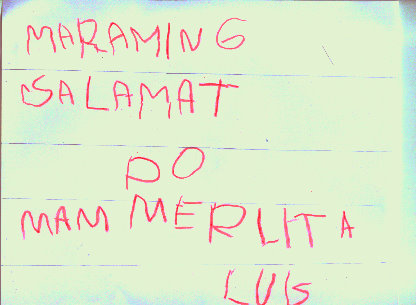 MARAMING
SALAMAT
PO
MAM MERLITA
LUIS